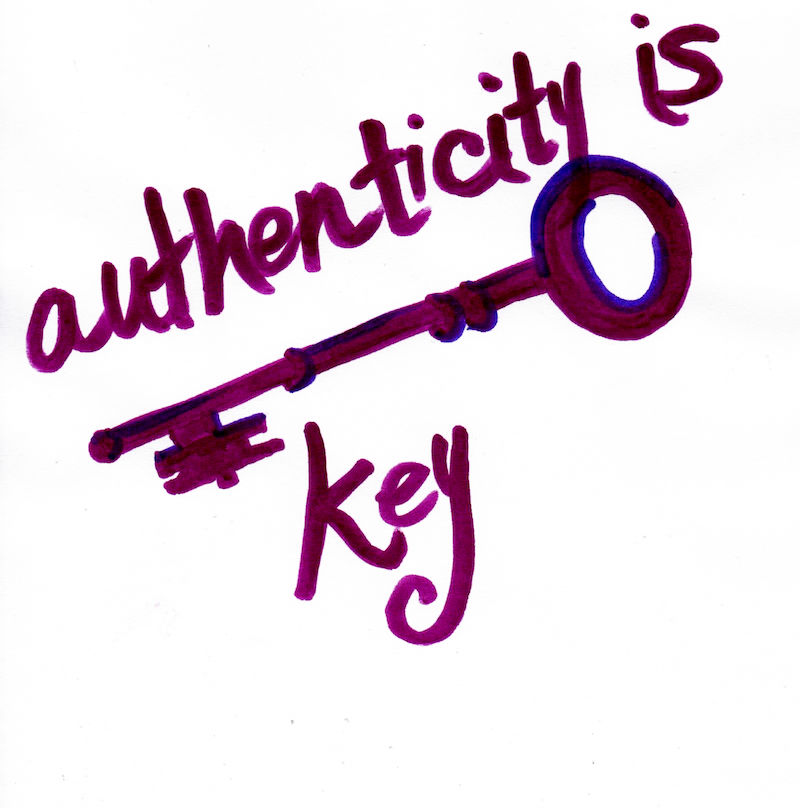 authenticity is
key